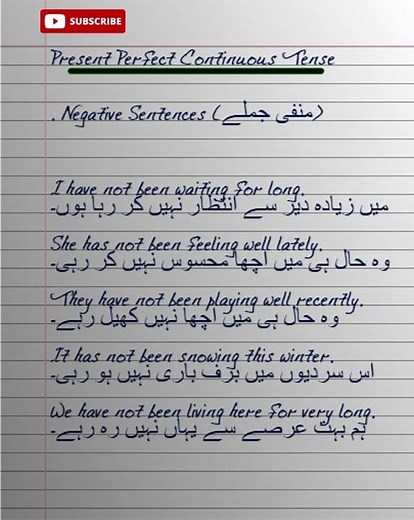 SUBSCRIBE
Present Perfect Continuous Tense
. Negative Sentences (منفی جملے)
I have not been waiting for long.
میں زیادہ دیر سے انتظار نہیں کر رہا ہوں۔
She has not been feeling well lately.
وہ حال ہی میں اچھا محسوس نہیں کر رہی۔
They have not been playing well recently.
وہ حال ہی میں اچھا نہیں کھیل رہے۔
It has not been snowing this winter.
اس سردیوں میں برف باری نہیں ہو رہی۔
We have not been living here for very long.
ہم بہت عرصے سے یہاں نہیں رہ رہے۔